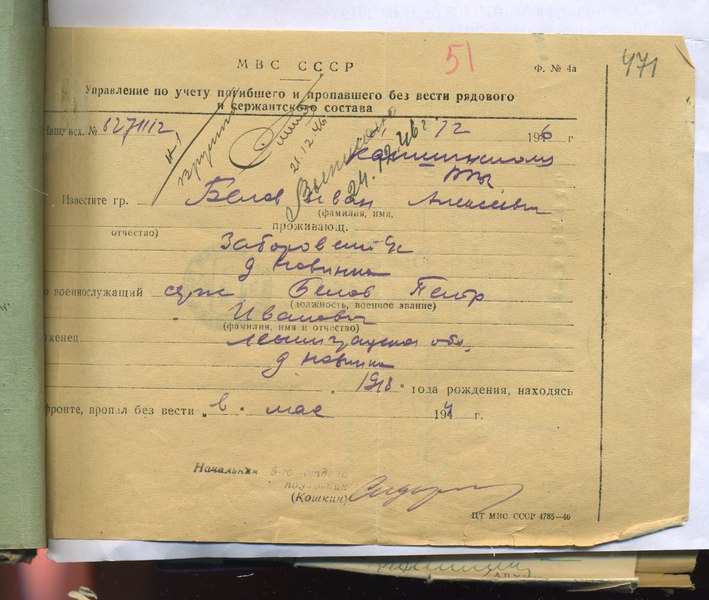 51
471
МВС СССР
Ф. № 4а
Управление по учету погибшего и пропавшего без вести рядового
и сержантского состава
Наш вх. № 6271112
12 1946 г
21.12.46
Выписано
24.12.46 г
Известите гр. Белов Иван Алексеевич
(фамилия, имя,
отчество) проживающ.
д Новинка
о военнослужащий серж Белов Петр
(должность, военное звание)
Иванович
(фамилия, имя и отчество)
Ленинградская обл,
д Новинка
1918 года рождения, находясь
фронте, пропал без вести в мае 194 г.
Начальник 6-го отдела
(Кошкин)
ЦТ МВС СССР 4785—46